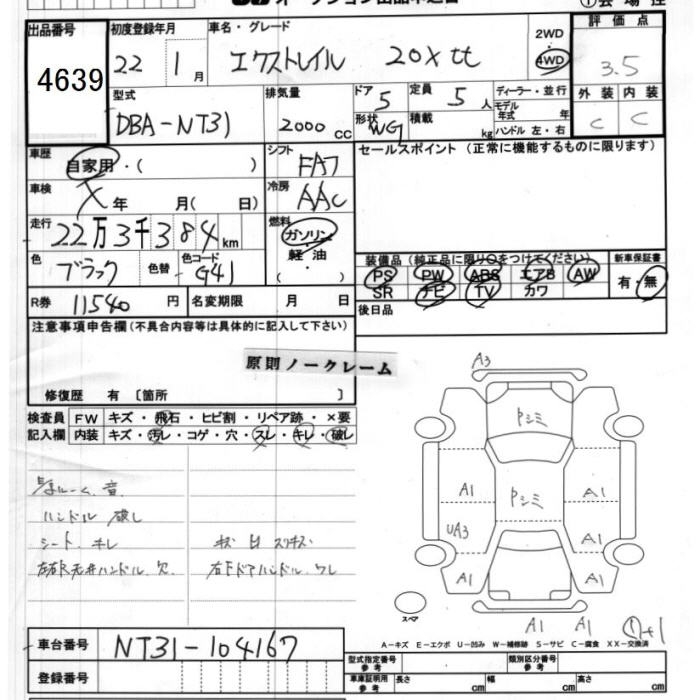 オークション出品申込書
①会場控
出品番号 初度登録年月 車名・グレード 2WD 評価点
4639 22 1月 エクストレイル 20X tt 4WD 3.5
型式 排気量 ドア 5 定員 5人 ディーラー・並行 外装 内装
DBA-NT31 2000cc 形状 WG 積載 kg モデル年式 年 C C
ハンドル 左・右
車歴 自家用・( ) シフト FAT セールスポイント (正常に機能するものに限ります)
車検 X年 月( 日) 冷房 AAC
走行 22万3千384km 燃料 ガソリン・軽油 ( )
色 ブラック 色替 色コード G41
装備品 (純正品に限り○をつけてください) 新車保証書
PS PW ABS エアB AW 有・無
SR ナビ TV カワ
R券 11540円 名変期限 月 日 後日品
注意事項申告欄(不具合内容等は具体的に記入して下さい)
原則ノークレーム
修復歴 有 〔箇所 〕
検査員記入欄 FW キズ・飛石・ヒビ割・リペア跡・×要
内装 キズ・汚レ・コゲ・穴・スレ・キレ・破レ
ルーム 音
ハンドル 破レ
シート キレ スリキズ
天井ハンドル 欠 右下ドアハンドル ワレ
A3
Pシミ
A1 Pシミ A1
UA3 A1
A1 A1
スペア A1 A1 +1
A-キズ E-エクボ U-凹み W-補修跡 S-サビ C-腐食 XX-交換済
車台番号 NT31-104167
登録番号
型式指定番号 参考 類別区分番号 参考
車庫証明用 参考 長さ cm 幅 cm 高さ cm